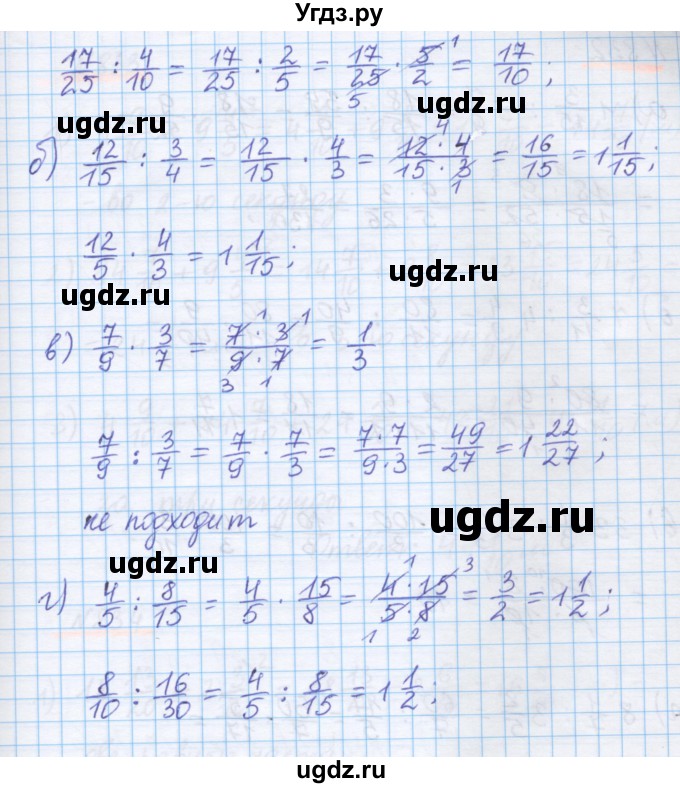 Угдз.ру
17/25 : 4/10 = 17/25 : 2/5 = 17/25 · 5/2 = 17/10 ;
5 1
ugdz.ru ugdz.ru
б) 12/15 : 3/4 = 12/15 · 4/3 = 12 · 4/15 · 3 = 16/15 = 1 1/15 ;
4 1
12/5 · 4/3 = 1 1/15 ;
ugdz.ru
ugdz.ru
в) 7/9 · 3/7 = 7 · 3/9 · 7 = 1/3
1 1 3 1
7/9 : 3/7 = 7/9 · 7/3 = 7·7/9·3 = 49/27 = 1 22/27 ;
не подходит
ugdz.ru
ugdz.ru
г) 4/5 : 8/15 = 4/5 · 15/8 = 4 · 15/5 · 8 = 3/2 = 1 1/2 ;
1 3 1 2
8/10 : 16/30 = 4/5 : 8/15 = 1 1/2 ;
ugdz.ru
ugdz.ru